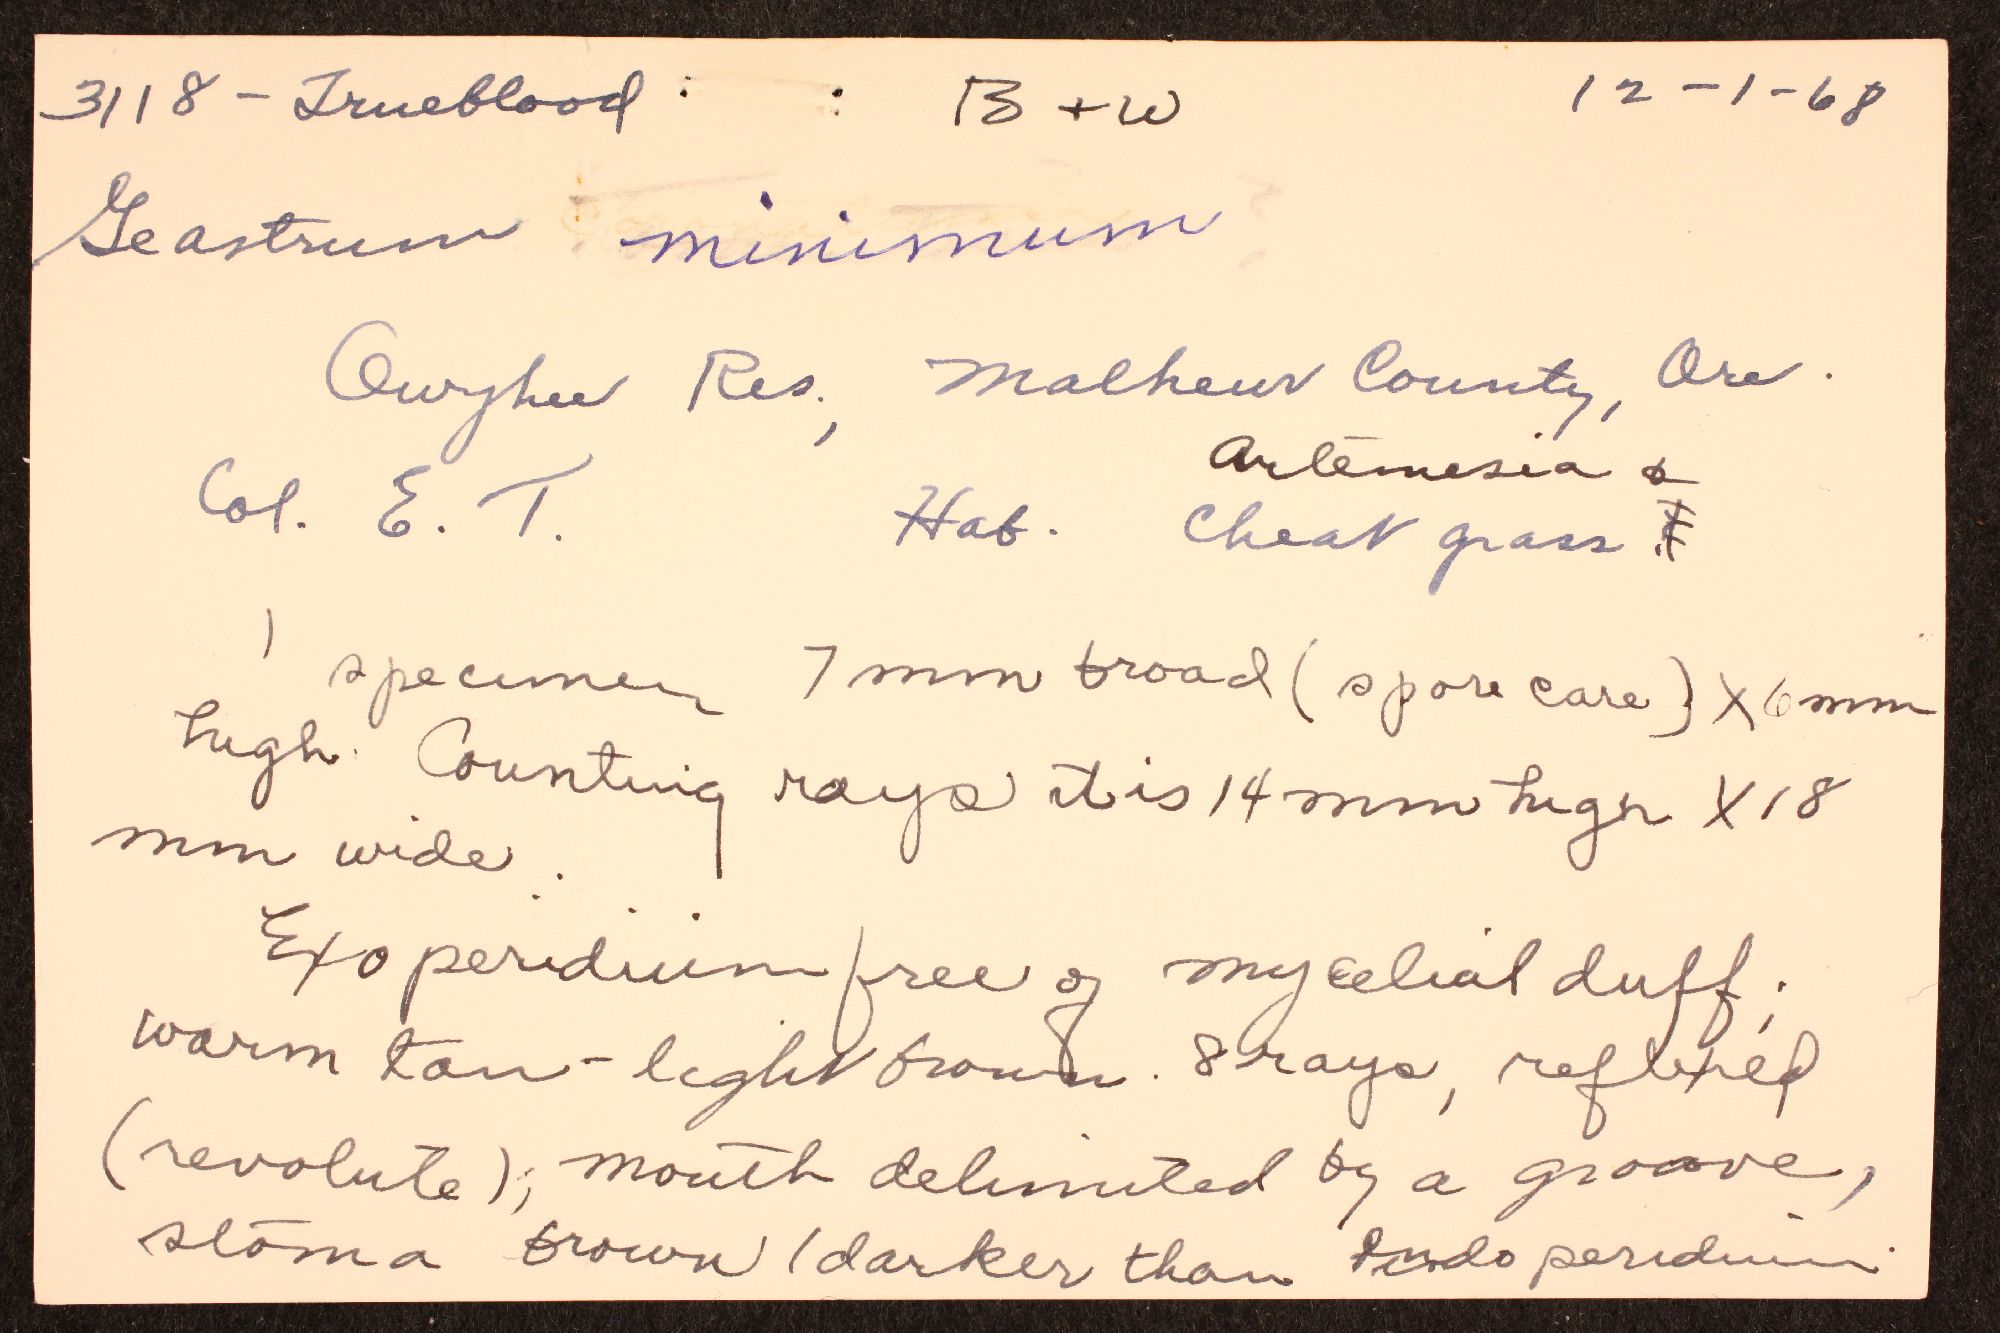 3118 - Trueblood : : B + W 12-1-68
Geastrum minimum
Owyhee Res., Malheur County, Ore.
Artemesia &
Col. E. T. Hab. Cheat grass
1 specimen 7 mm broad (spore care) X 6 mm
high. Counting rays it is 14 mm high X 18
mm wide.
Exoperidium free of mycelial duff;
warm tan - light brown. 8 rays, reflexed
(revolute); mouth delimited by a groove,
stoma brown (darker than Endoperidium